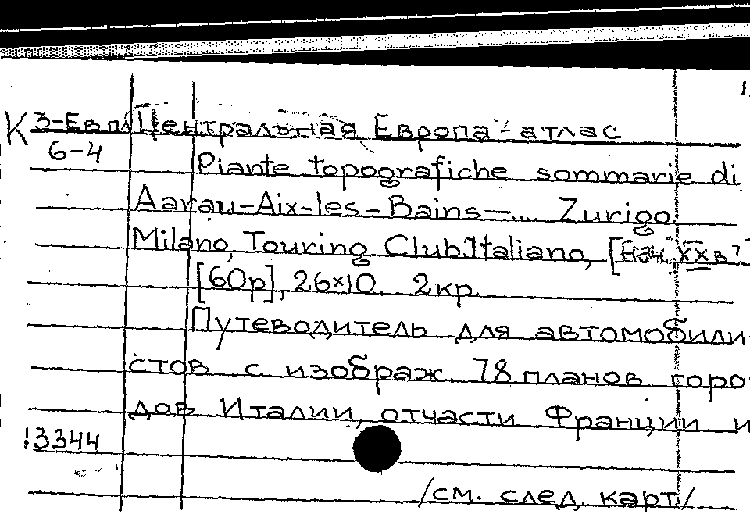 К З-Евп Центральная Европа - атлас
6-4 Piante topografiche sommarie di
Aarau-Aix-les-Bains-... Zurigo.
Milano, Touring Club Italiano, [Нач. XX в?
[60р], 26x10. 2кр.
Путеводитель для автомобили-
стов с изображ. 78 планов горо-
дов Италии, отчасти Франции и
13344
/см. след. карт/